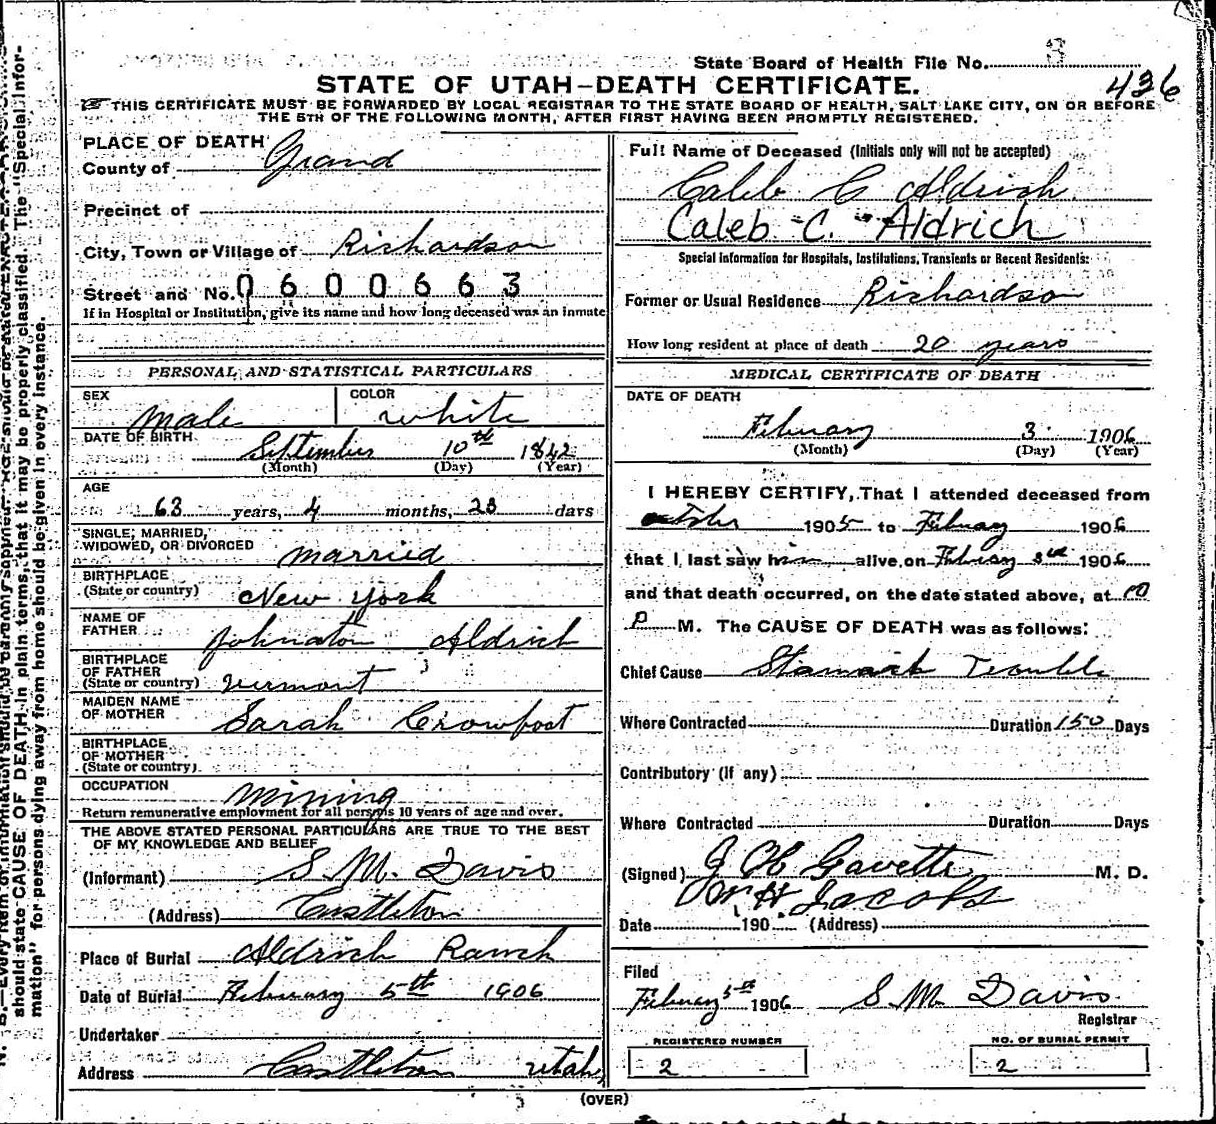 State Board of Health File No. 3
436
STATE OF UTAH-DEATH CERTIFICATE.
THIS CERTIFICATE MUST BE FORWARDED BY LOCAL REGISTRAR TO THE STATE BOARD OF HEALTH, SALT LAKE CITY, ON OR BEFORE
THE 5TH OF THE FOLLOWING MONTH, AFTER FIRST HAVING BEEN PROMPTLY REGISTERED.
PLACE OF DEATH
County of Grand
Precinct of
City, Town or Village of Richardson
Street and No. 0600663
If in Hospital or Institution, give its name and how long deceased was an inmate
PERSONAL AND STATISTICAL PARTICULARS
SEX Male
COLOR white
DATE OF BIRTH September 10th 1842
(Month) (Day) (Year)
AGE
63 years, 4 months, 23 days
SINGLE, MARRIED,
WIDOWED, OR DIVORCED married
BIRTHPLACE
(State or country) New York
NAME OF
FATHER Johnaton Aldrich
BIRTHPLACE
OF FATHER
(State or country) Vermont
MAIDEN NAME
OF MOTHER Sarah Crowfoot
BIRTHPLACE
OF MOTHER
(State or country)
OCCUPATION mining
Return remunerative employment for all persons 10 years of age and over.
THE ABOVE STATED PERSONAL PARTICULARS ARE TRUE TO THE BEST
OF MY KNOWLEDGE AND BELIEF
(Informant) S. M. Davis
(Address) Castleton
Place of Burial Aldrich Ranch
Date of Burial February 5th 1906
Undertaker
Address Castleton Utah
Full Name of Deceased (Initials only will not be accepted)
Caleb C Aldrich
Caleb C. Aldrich
Special Information for Hospitals, Institutions, Transients or Recent Residents:
Former or Usual Residence Richardson
How long resident at place of death 20 years
MEDICAL CERTIFICATE OF DEATH
DATE OF DEATH
February 3 1906
(Month) (Day) (Year)
I HEREBY CERTIFY, That I attended deceased from
October 1905 to Februay 1906
that I last saw him alive on Februay 3rd 1906
and that death occurred, on the date stated above, at 10
P M. The CAUSE OF DEATH was as follows:
Chief Cause Stomach Trouble
Where Contracted Duration 150 Days
Contributory (If any)
Where Contracted Duration Days
(Signed) Gavette M. D.
W H Jacobs
Date 190 (Address)
Filed
Februay 5th 1906 S M Davis
Registrar
REGISTERED NUMBER
2
NO. OF BURIAL PERMIT
2
(OVER)
should state CAUSE OF DEATH in plain terms, that it may be properly classified. The "Special Infor-
mation" for persons dying away from home should be given in every instance.